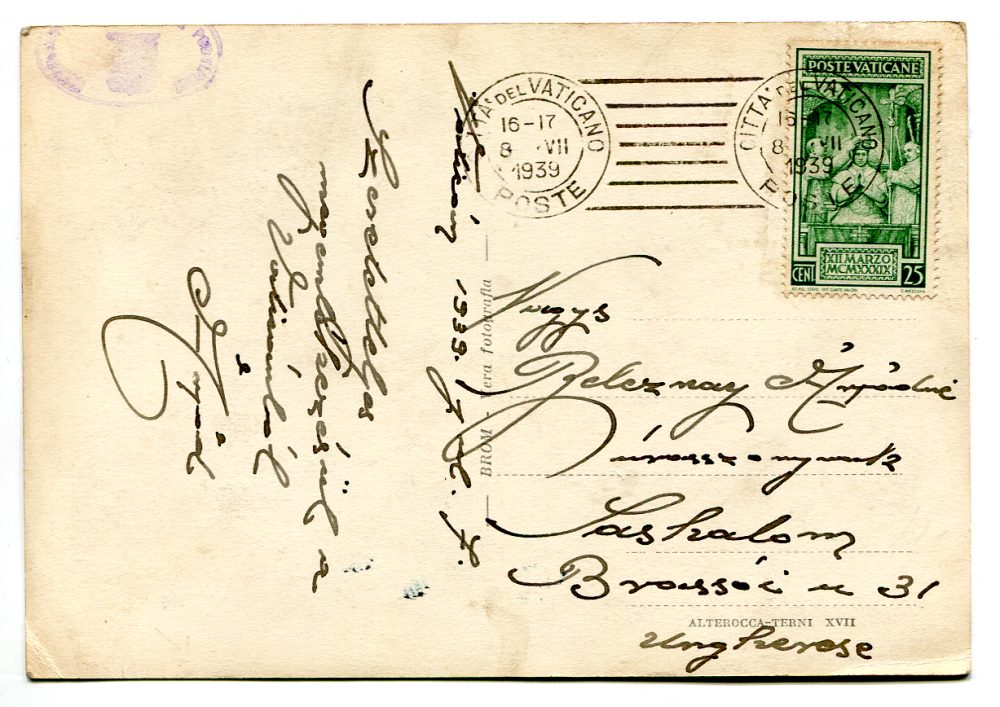 Vatican, 1939. Jul. 7.
Szeretettel
megemlékezésül a
Vatikánból
Árpád
CITTA' DEL VATICANO
16-17
8 VII
1939
POSTE
CITTA' DEL VATICANO
16-17
8 VII
1939
POSTE
POSTE VATICANE
XII MARZO
MCMXXXIX
CENT. 25
BROM — vera fotografia
Nagys
Beleznay Árpádné
úrasszonynak
Sashalom
Brassói u 31
ALTEROCCA-TERNI XVII
Ungherese